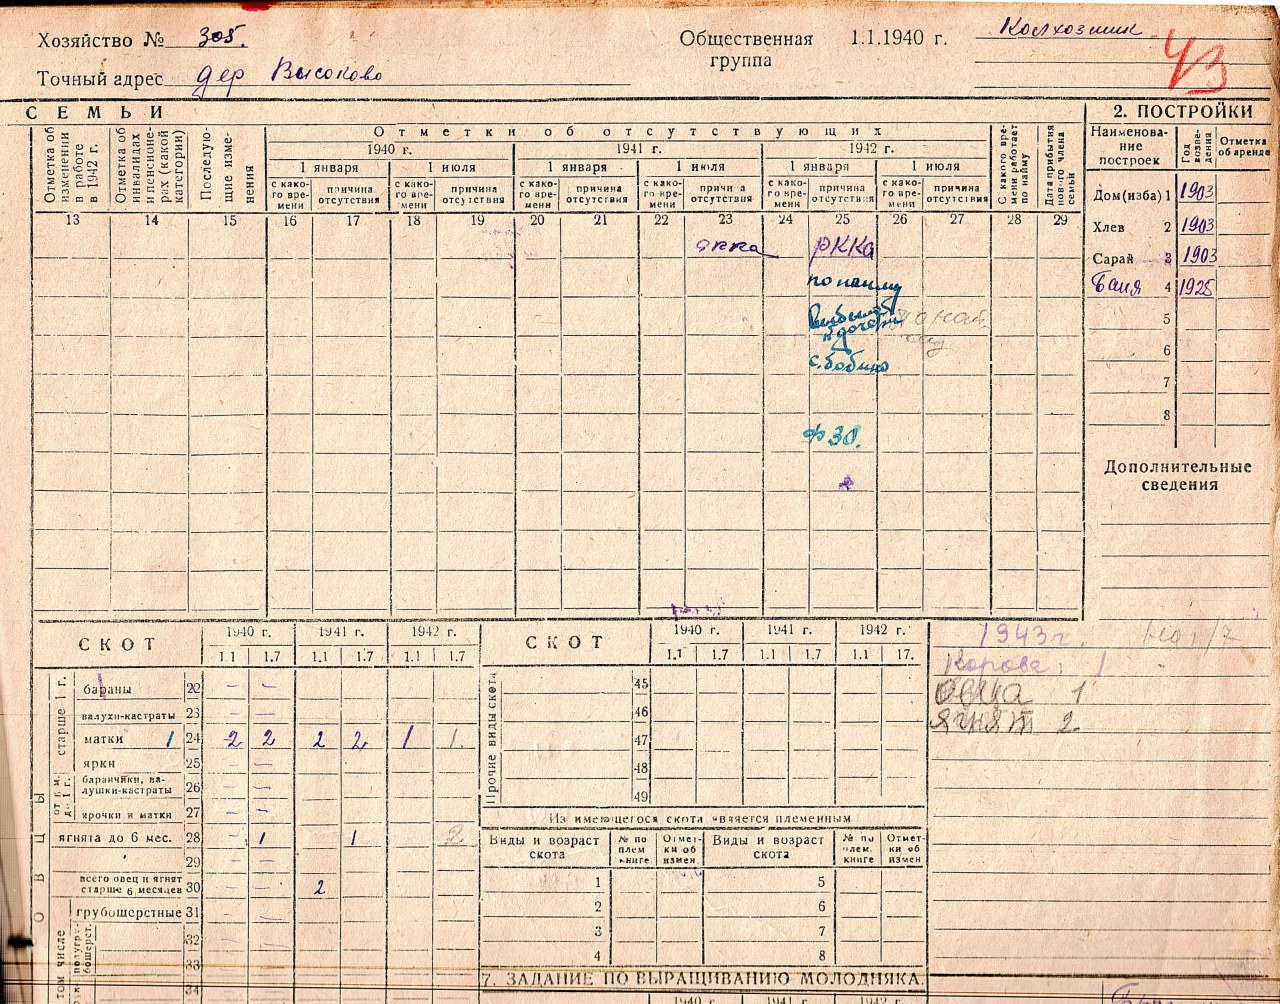 Хозяйство № 305.
Общественная группа 1.1.1940 г. Колхозник
43
Точный адрес дер Высоково
СЕМЬИ
Отметка об изменении в работе в 1942 г.
Отметка об инвалидах и пенсионерах (какой категории)
Последующие изменения
Отметки об отсутствующих
1940 г. 1941 г. 1942 г.
1 января 1 июля 1 января 1 июля 1 января 1 июля
с како-го вре-мени причина отсутствия с како-го вре-мени причина отсутствия с како-го вре-мени причина отсутствия с како-го вре-мени причина отсутствия с како-го вре-мени причина отсутствия с како-го вре-мени причина отсутствия
С какого времени работает по найму
Дата прибытия нового члена семьи
13 14 15 16 17 18 19 20 21 22 23 24 25 26 27 28 29
РККА РККА
по найму
к дочери
с. Бобино
ФЗО.
2. ПОСТРОЙКИ
Наименова-ние построек Год возве-дения Отметка об аренде
Дом (изба) 1 1903
Хлев 2 1903
Сарай 3 1903
Баня 4 1925
5
6
7
8
Дополнительные сведения
СКОТ
1940 г. 1941 г. 1942 г.
1.1 1.7 1.1 1.7 1.1 1.7
старше 1 г.
бараны 22 – –
валухи-кастраты 23 – –
матки 1 24 2 2 2 2 1 1
ярки 25 – –
баранчики, ва-лушки-кастраты 26 – –
ярочки и матки 27 – –
ягнята до 6 мес. 28 – 1 1 2
29 – –
всего овец и ягнят старше 6 месяцев 30 – – 2
ОВЦЫ
том числе
грубошерстные 31
полугру-бошерст.
32
33
34
СКОТ
1940 г. 1941 г. 1942 г.
1.1 1.7 1.1 1.7 1.1 17.
Прочие виды скота
45
46
47
48
49
Из имеющегося скота является племенным
Виды и возраст скота № по плем книге Отмет-ки об измен. Виды и возраст скота № по плем. книге Отмет-ки об измен
1 5
2 6
3 7
4 8
7. ЗАДАНИЕ ПО ВЫРАЩИВАНИЮ МОЛОДНЯКА.
1940 г. 1941 г. 1942 г.
1943 г. на 1/7
Корова: 1
Овца 1
ягнят 2.